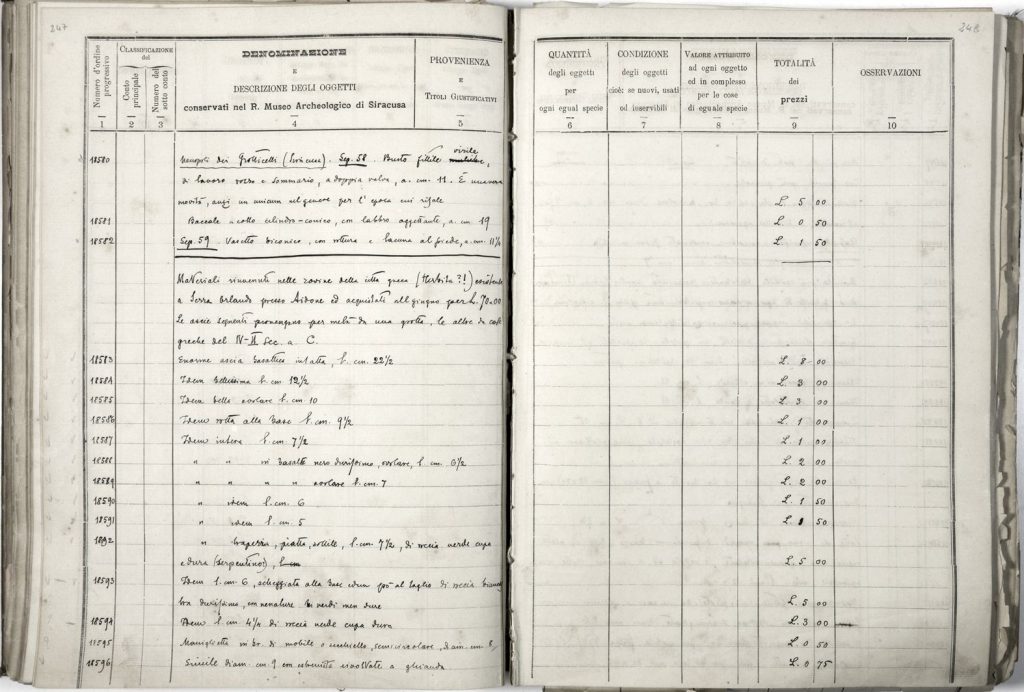 247
Numero d'ordine progressivo
CLASSIFICAZIONE del
Conto principale
Numero del sotto conto
DENOMINAZIONE
E
DESCRIZIONE DEGLI OGGETTI
conservati nel R. Museo Archeologico di Siracusa
PROVENIENZA
E
TITOLI GIUSTIFICATIVI
1 2 3 4 5
18580 Necropoli dei Grotticelli (Siracusa). Sep. 58. Busto fittile virile,
di lavoro rozzo e sommario, a doppia valva, a. cm. 11. È una vera
novità, anzi un unicum nel genere per l'epoca cui risale
18581 Boccale acotto cilindro-conico, con labbro aggettante, a. cm 19
18582 Sep. 59. Vasetto biconico, con rottura e lacuna al piede, a. cm. 11½
Materiali rinvenuti nelle rovine della città greca (Herbita?!) esistente
a Serra Orlando presso Aidone ed acquistati all giugno per L. 70.00
Le ascie seguenti provengono per metà da una grotta, le altre da case
greche del IV-II Sec. a. C.
18583 Enorme ascia basaltica intatta, l. cm. 22½
18584 Idem bellissima l. cm 12½
18585 Idem bella ovolare l. cm 10
18586 Idem rotta alla base l. cm. 9½
18587 Idem intera l. cm. 7½
18588 " " in basalto nero durissimo, ovolare, l. cm. 6½
18589 " " " " ovolare l. cm. 7
18590 " idem l. cm. 6
18591 " idem l. cm. 5
1892 " trapezia, piatta, sottile, l. cm. 7½, di roccia verde cupa
e dura (serpentino),
18593 Idem l. cm. 6, scheggiata alla base edun pò al taglio di roccia
durissimo, con venature verdi men dure
18594 Idem l. cm 4¼ di roccia verde cupa dura
18595 Maniglietta in br. di mobile o secchiello, semicircolare, diam. cm 8,
18596 Simile diam. cm 9 con estremità risvoltate a ghianda
248
QUANTITÀ
degli oggetti
per
ogni egual specie
CONDIZIONE
degli oggetti
cioè: se nuovi, usati
od inservibili
VALORE ATTRIBUITO
ad ogni oggetto
ed in complesso
per le cose
di eguale specie
TOTALITÀ
dei
prezzi
OSSERVAZIONI
6 7 8 9 10
L. 5 00
L. 0 50
L. 1 50
L. 8 00
L. 3 00
L. 3 00
L. 1 00
L. 1 00
L. 2 00
L. 2 00
L. 1 50
L. 1 50
L. 5 00
L. 5 00
L. 3 00
L. 0 50
L. 0 75